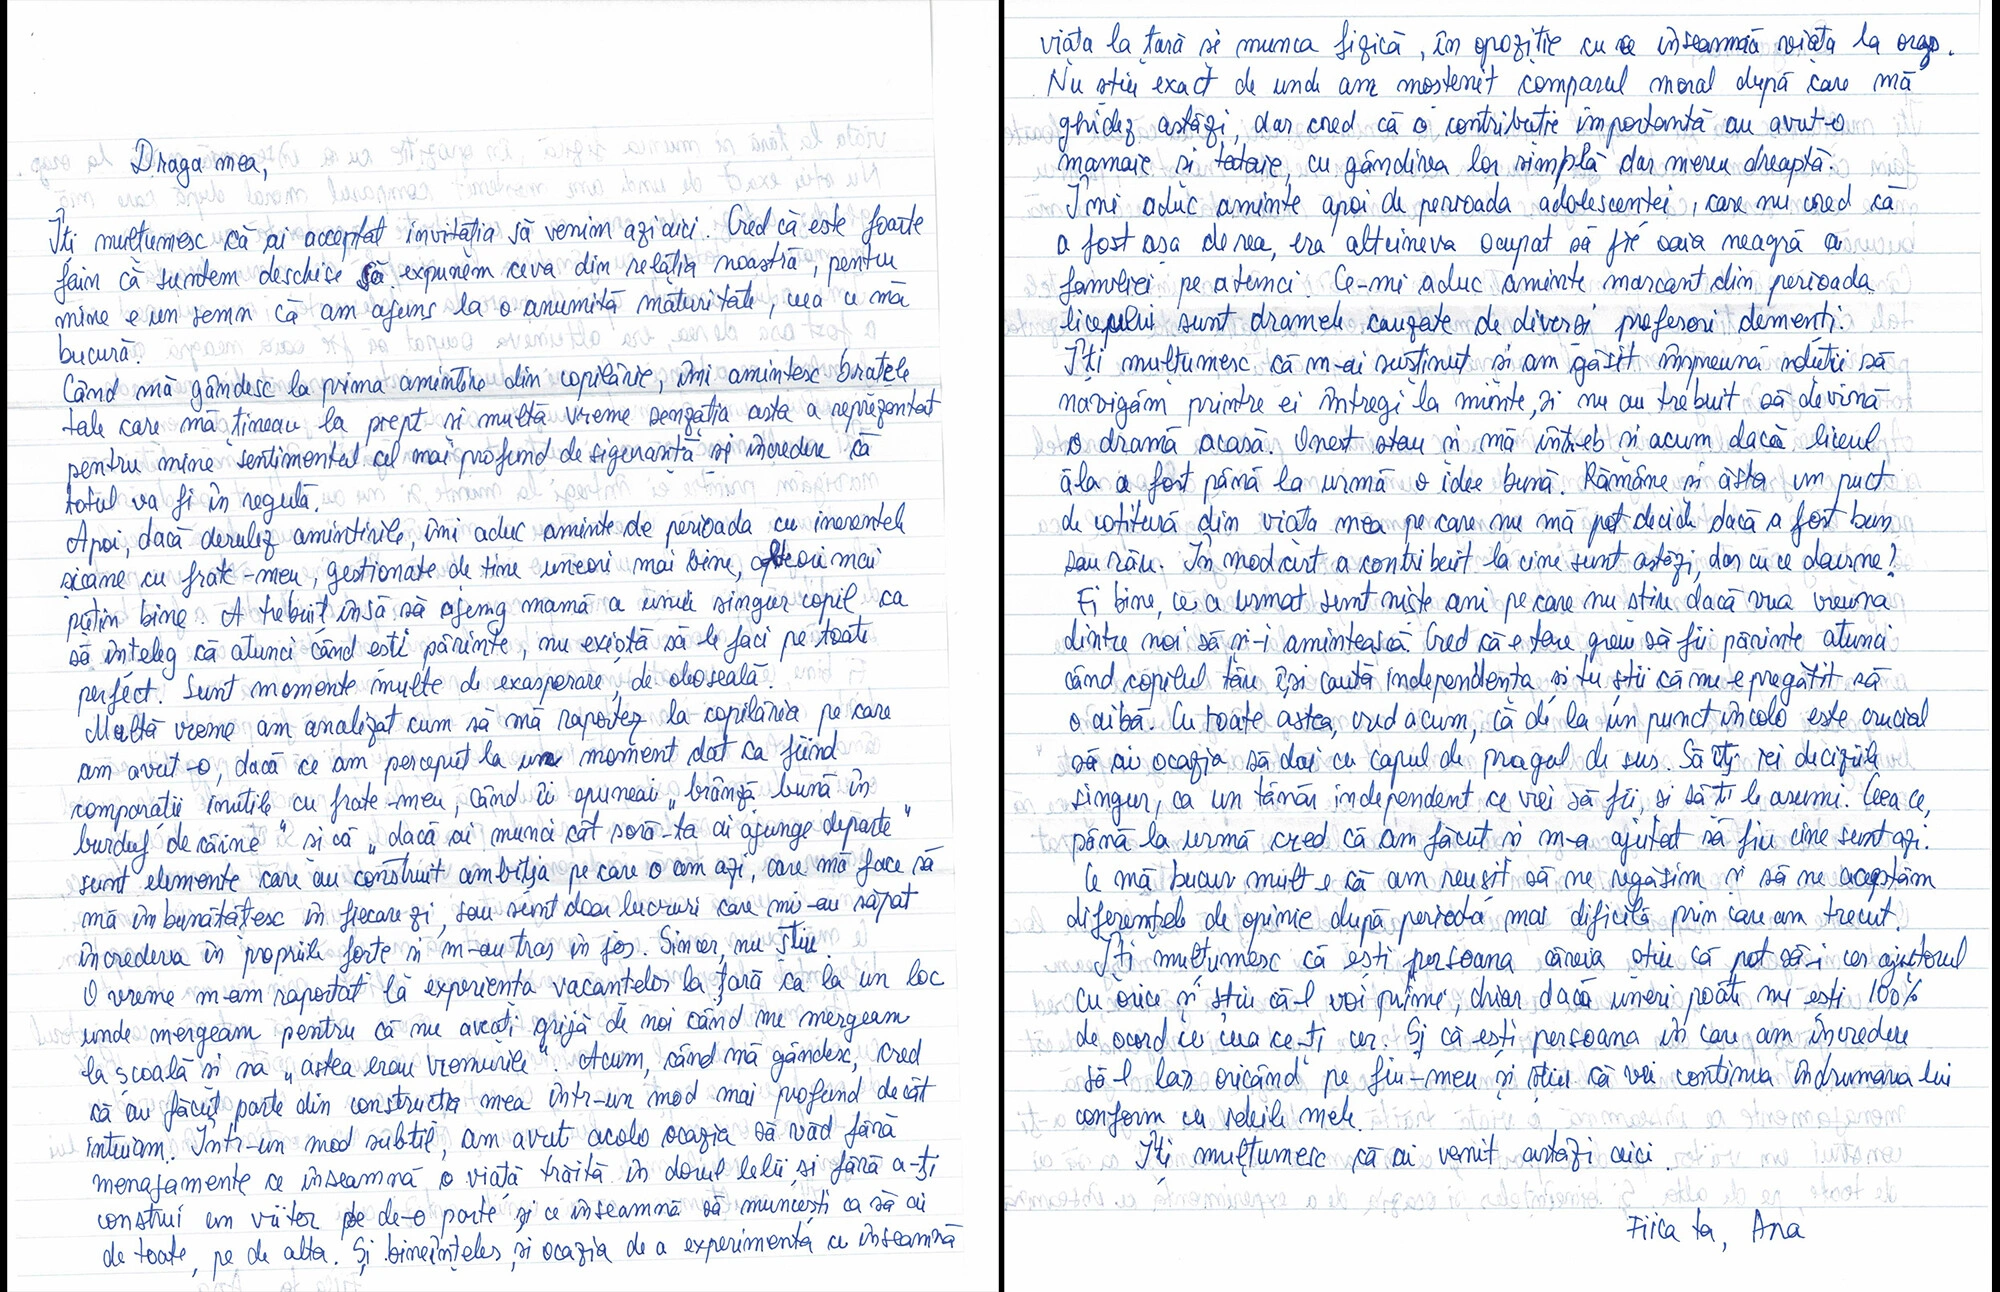 Draga mea,
Îți mulțumesc că ai acceptat invitația să venim azi aici. Cred că este foarte
fain că suntem deschise să expunem ceva din relația noastră, pentru
mine e un semn că am ajuns la o anumită maturitate, ceea ce mă
bucură.
Când mă gândesc la prima amintire din copilărie, îmi amintesc brațele
tale care mă țineau la piept și multă vreme senzația asta a reprezentat
pentru mine sentimentul cel mai profund de siguranță și încredere că
totul va fi în regulă.
Apoi, dacă derulez amintirile, îmi aduc aminte de perioada cu inerentele
șicane cu frate-meu, gestionate de tine uneori mai bine, alteori mai
puțin bine. A trebuit însă să ajung mamă a unui singur copil ca
să înțeleg că atunci când ești părinte, nu există să le faci pe toate
perfect. Sunt momente multe de exasperare, de oboseală.
Multă vreme am analizat cum să mă raportez la copilăria pe care
am avut-o, dacă ce am perceput la un moment dat ca fiind
comparații inutile cu frate-meu, când îi spuneai „brânză bună în
burduf de câine" și că „dacă ai munci cât soră-ta ai ajunge departe"
sunt elemente care au construit ambiția pe care o am azi, care mă face să
mă îmbunătățesc în fiecare zi, sau sunt doar lucruri care mi-au săpat
încrederea în propriile forțe și m-au tras în jos. Sincer, nu știu.
O vreme m-am raportat la experiența vacanțelor la țară ca la un loc
unde mergeam pentru că nu aveați grijă de noi când nu mergeam
la școală și na „astea erau vremurile". Acum, când mă gândesc, cred
că au făcut parte din construcția mea într-un mod mai profund decât
intuiam. Într-un mod subtil, am avut acolo ocazia să văd fără
menajamente ce înseamnă o viață trăită în dorul lelii, și fără a-ți
construi un viitor pe de-o parte și ce înseamnă să muncești ca să ai
de toate, pe de alta. Și bineînțeles, și ocazia de a experimenta ce înseamnă
viața la țară și munca fizică, în opoziție cu ce înseamnă viața la oraș.
Nu știu exact de unde am moștenit compasul moral după care mă
ghidez astăzi, dar cred că o contribuție importantă au avut-o
mamaie și tataie, cu gândirea lor simplă dar mereu dreaptă.
Îmi aduc aminte apoi de perioada adolescenței, care nu cred că
a fost așa de rea, era altcineva ocupat să fie oaia neagră a
familiei pe atunci. Ce-mi aduc aminte marcant din perioada
liceului sunt dramele cauzate de diverși profesori demenți.
Îți mulțumesc că m-ai susținut și am găsit împreună soluții să
navigăm printre ei întregi la minte, și nu au trebuit să devină
o dramă acasă. Onest stau și mă întreb și acum dacă liceul
ăla a fost până la urmă o idee bună. Rămâne și ăsta un puct
de cotitură din viața mea pe care nu mă pot decide dacă a fost bun
sau rău. În mod cert a contribuit la cine sunt astăzi, dar cu ce daune?
Ei bine, ce a urmat sunt niște ani pe care nu știu dacă vrea vreuna
dintre noi să și-i amintească. Cred că e tare greu să fii părinte atunci
când copilul tău își caută independența și tu știi că nu e pregătit să
o aibă. Cu toate astea, cred acum, că de la un punct încolo este crucial
să ai ocazia să dai cu capul de pragul de sus. Să îți iei deciziile
singur, ca un tânăr independent ce vrei să fii, și să ți le asumi. Ceea ce,
până la urmă cred că am făcut și m-a ajutat să fiu cine sunt azi.
Ce mă bucur mult e că am reușit să ne regăsim și să ne acceptăm
diferențele de opinie după perioda mai dificilă prin care am trecut.
Îți mulțumesc că ești persoana căreia știu că pot să-i cer ajutorul
cu orice și știu că-l voi primi, chiar dacă uneri poate nu ești 100%
de acord cu ceea ce-ți cer. Și că ești persoana în care am încredere
să-l las oricând pe fiu-meu și știu că vei continua îndrumarea lui
conform cu valorile mele.
Îți mulțumesc că ai venit astăzi aici.
Fiica ta, Ana